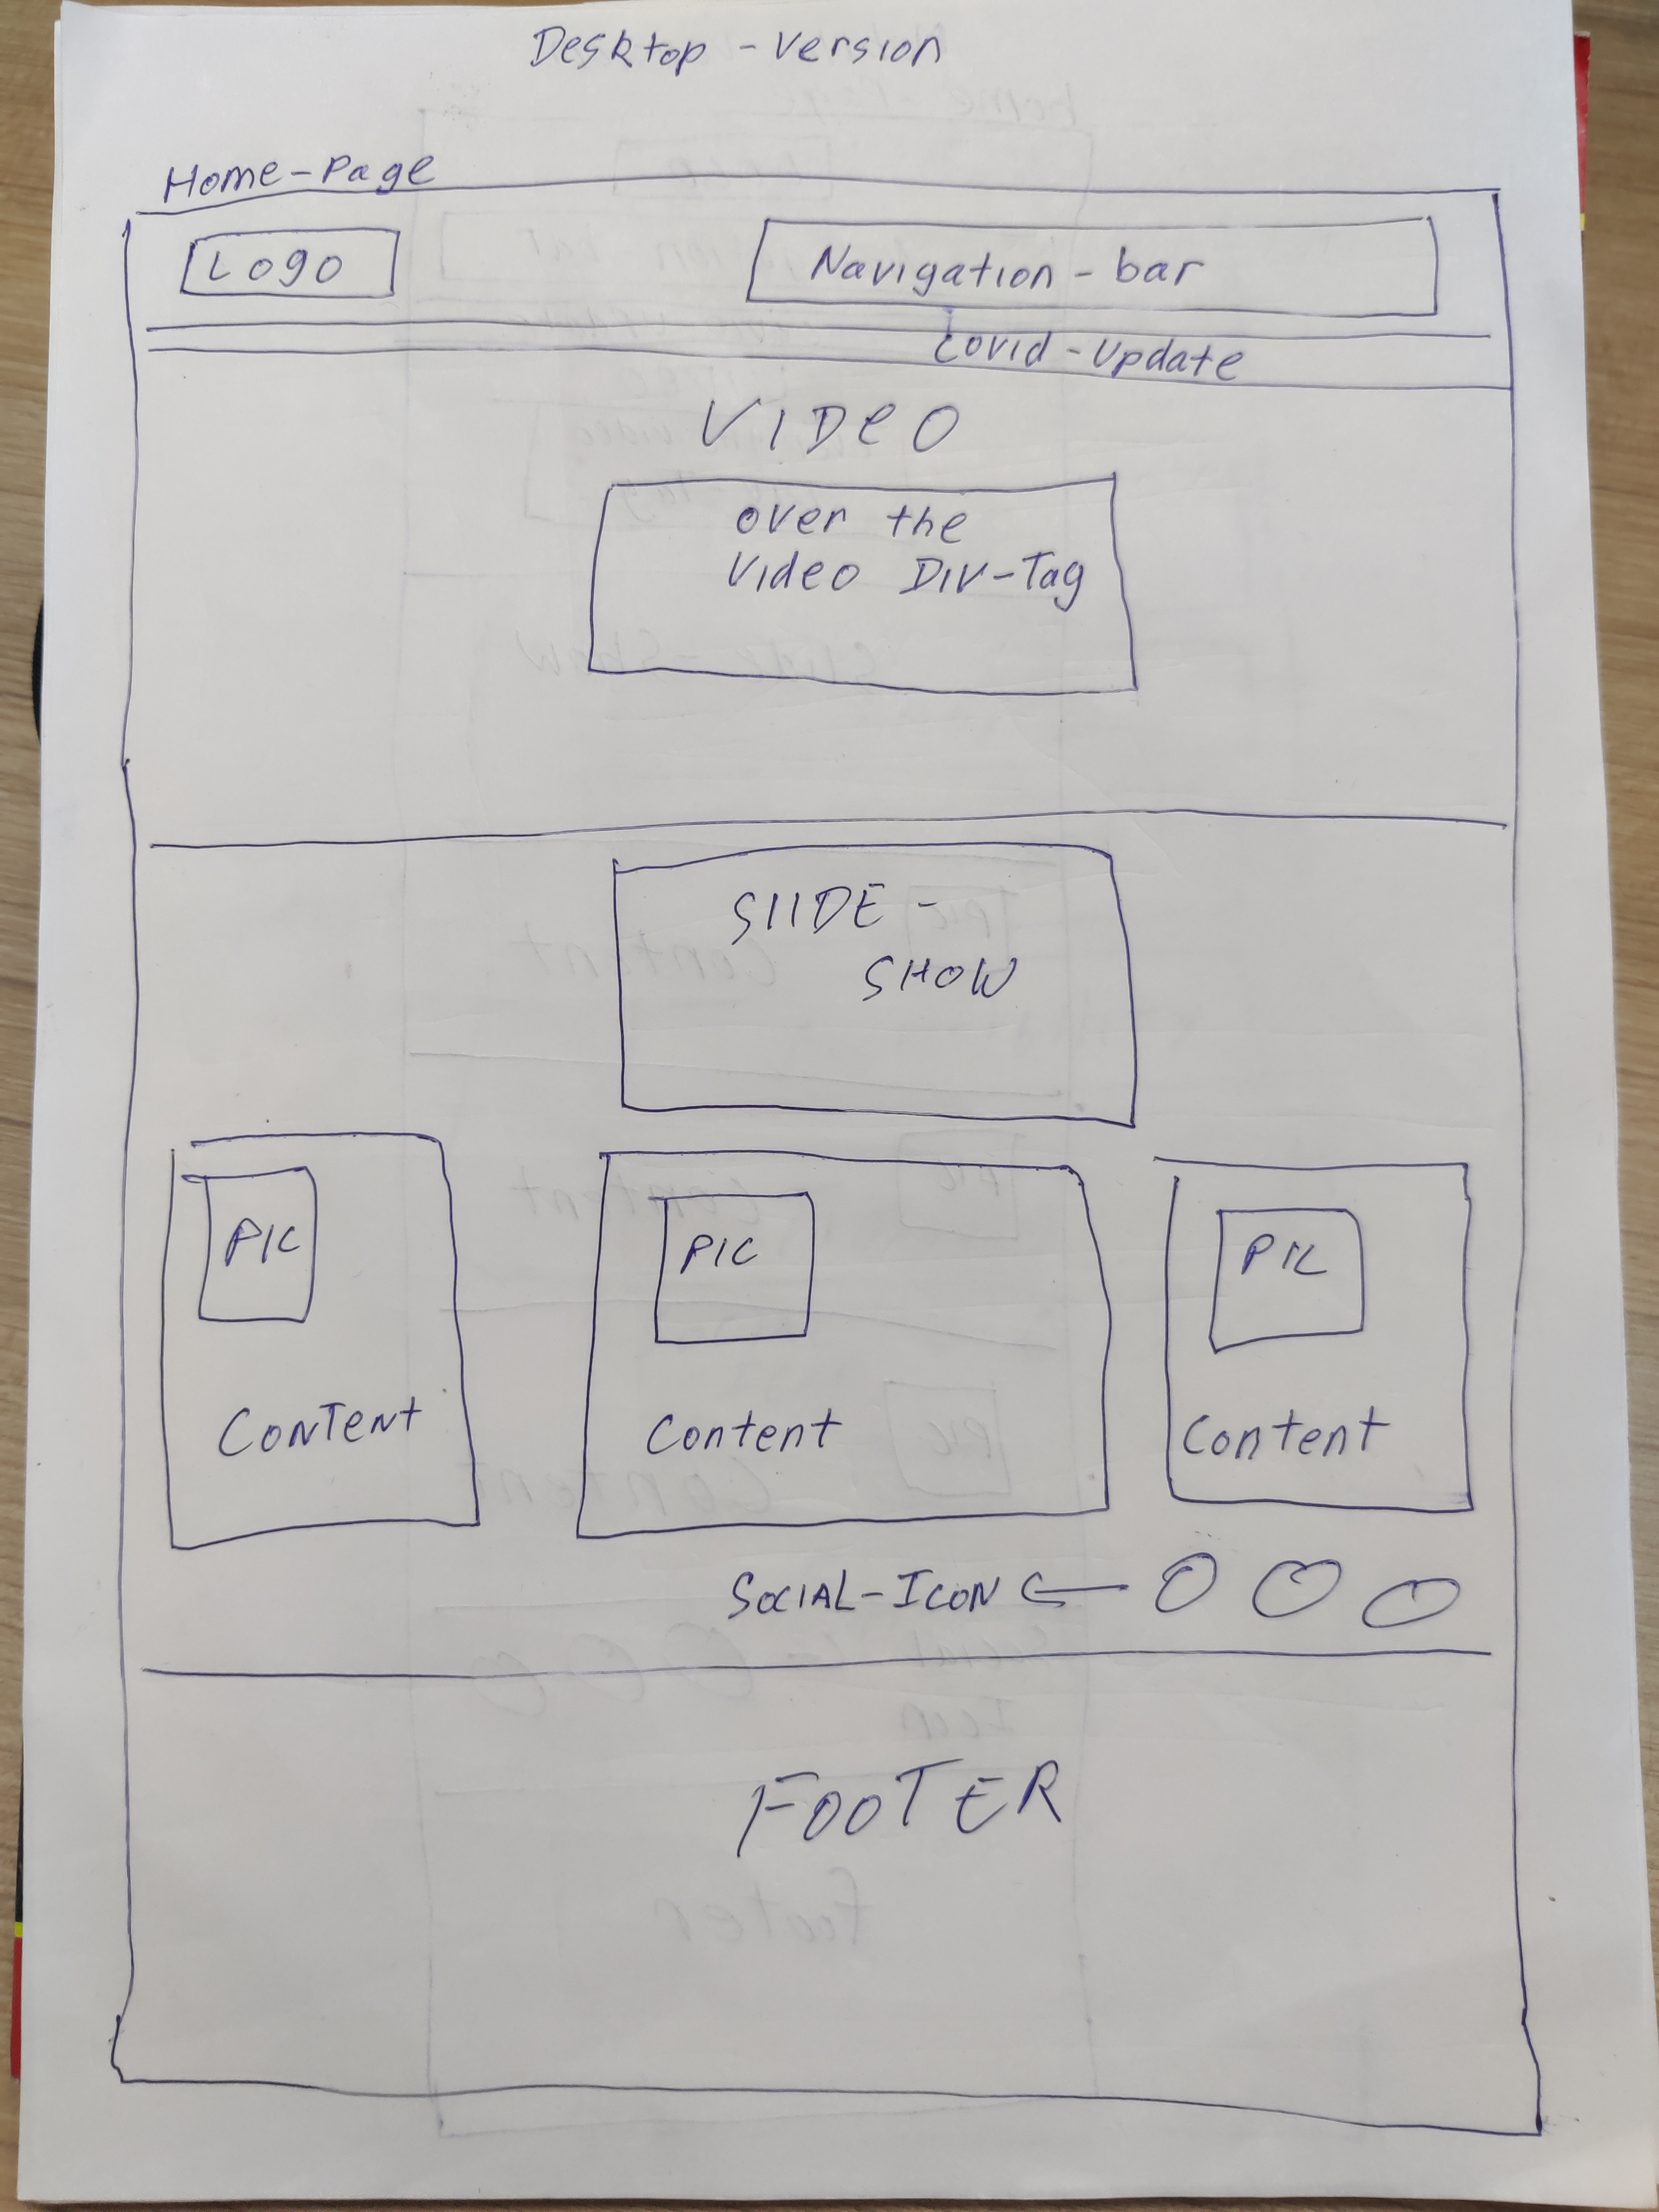 Desktop - Version
Home-Page
Logo
Navigation-bar
Covid-Update
VIDeO
over the
Video DIV-Tag
SlIDE -
SHOW
PIC
PIC
PIC
ConTenT
Content
Content
SOCIAL-ICON
FOOTER